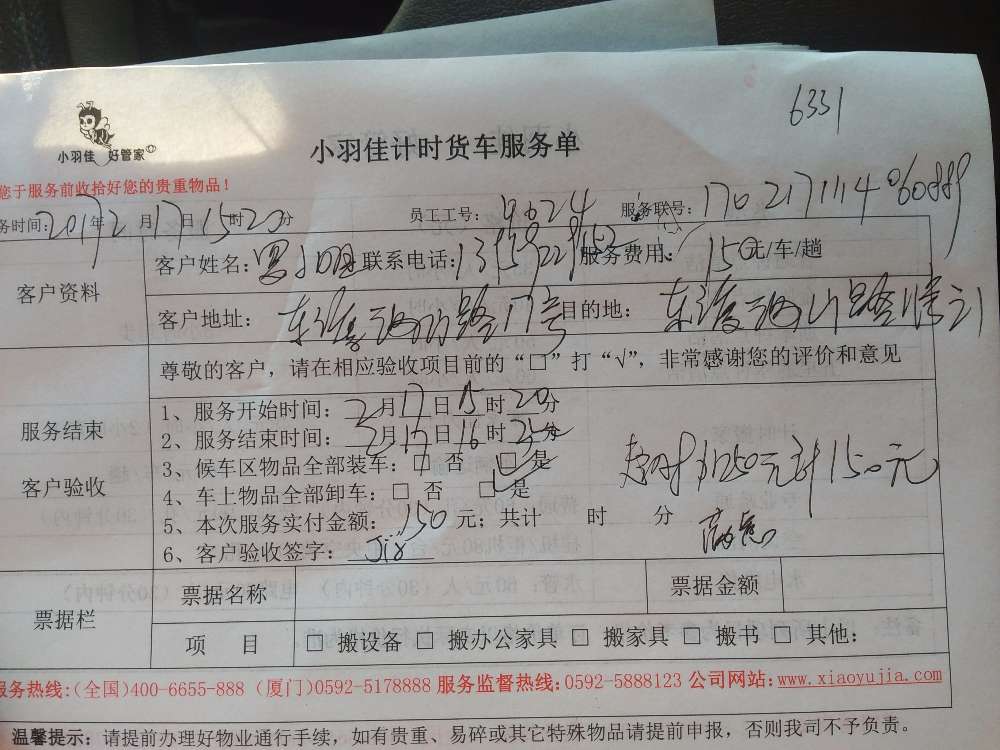 6331
小羽佳 好管家
小羽佳计时货车服务单
您于服务前收拾好您的贵重物品！
务时间：2017年2月17日15时20分 员工工号：19624 服务联号：
客户资料
客户姓名： 联系电话： 服务费用： 150元/车/趟
客户地址： 东渡 路 号 目的地： 东渡 路
尊敬的客户，请在相应验收项目前的“□”打“√”，非常感谢您的评价和意见
服务结束
客户验收
1、服务开始时间：2月17日15时20分
2、服务结束时间：2月17日16时25分
3、候车区物品全部装车：□ 否 □ 是
4、车上物品全部卸车：□ 否 □ 是
5、本次服务实付金额：150元；共计 时 分
6、客户验收签字：
150元
满意
票据栏
票据名称 票据金额
项 目 □ 搬设备 □ 搬办公家具 □ 搬家具 □ 搬书 □ 其他：
服务热线：(全国)400-6655-888 (厦门)0592-5178888 服务监督热线：0592-5888123 公司网站：www.xiaoyujia.com
温馨提示：请提前办理好物业通行手续，如有贵重、易碎或其它特殊物品请提前申报，否则我司不予负责。